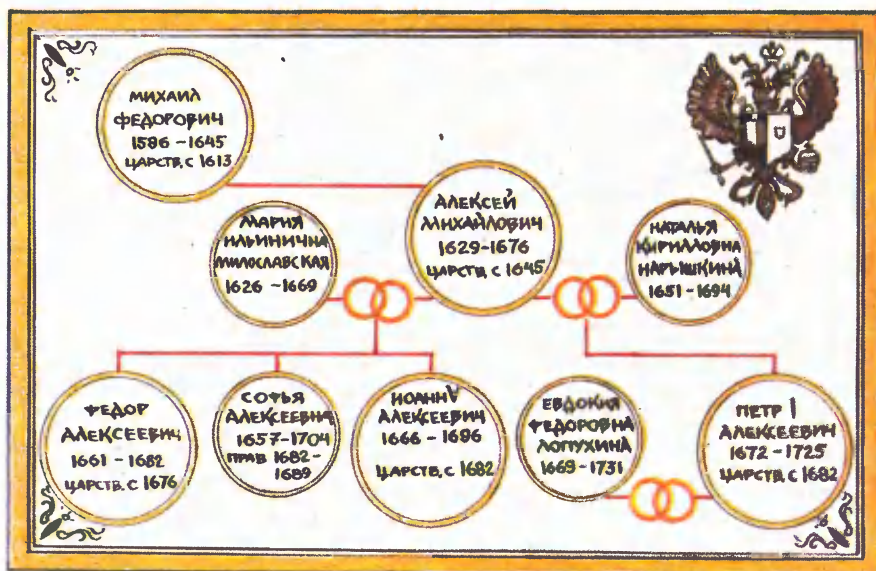 МИХАИЛ
ФЕДОРОВИЧ
1596 – 1645
ЦАРСТВ. С 1613
АЛЕКСЕЙ
МИХАЙЛОВИЧ
1629 – 1676
ЦАРСТВ. С 1645
МАРИЯ
ИЛЬИНИЧНА
МИЛОСЛАВСКАЯ
1626 – 1669
НАТАЛЬЯ
КИРИЛЛОВНА
НАРЫШКИНА
1651 – 1694
ФЕДОР
АЛЕКСЕЕВИЧ
1661 – 1682
ЦАРСТВ. С 1676
СОФЬЯ
АЛЕКСЕЕВНА
1657 – 1704
ПРАВ 1682 –
1689
ИОАНН V
АЛЕКСЕЕВИЧ
1666 – 1696
ЦАРСТВ. С 1682
ЕВДОКИЯ
ФЕДОРОВНА
ЛОПУХИНА
1669 – 1731
ПЕТР I
АЛЕКСЕЕВИЧ
1672 – 1725
ЦАРСТВ. С 1682